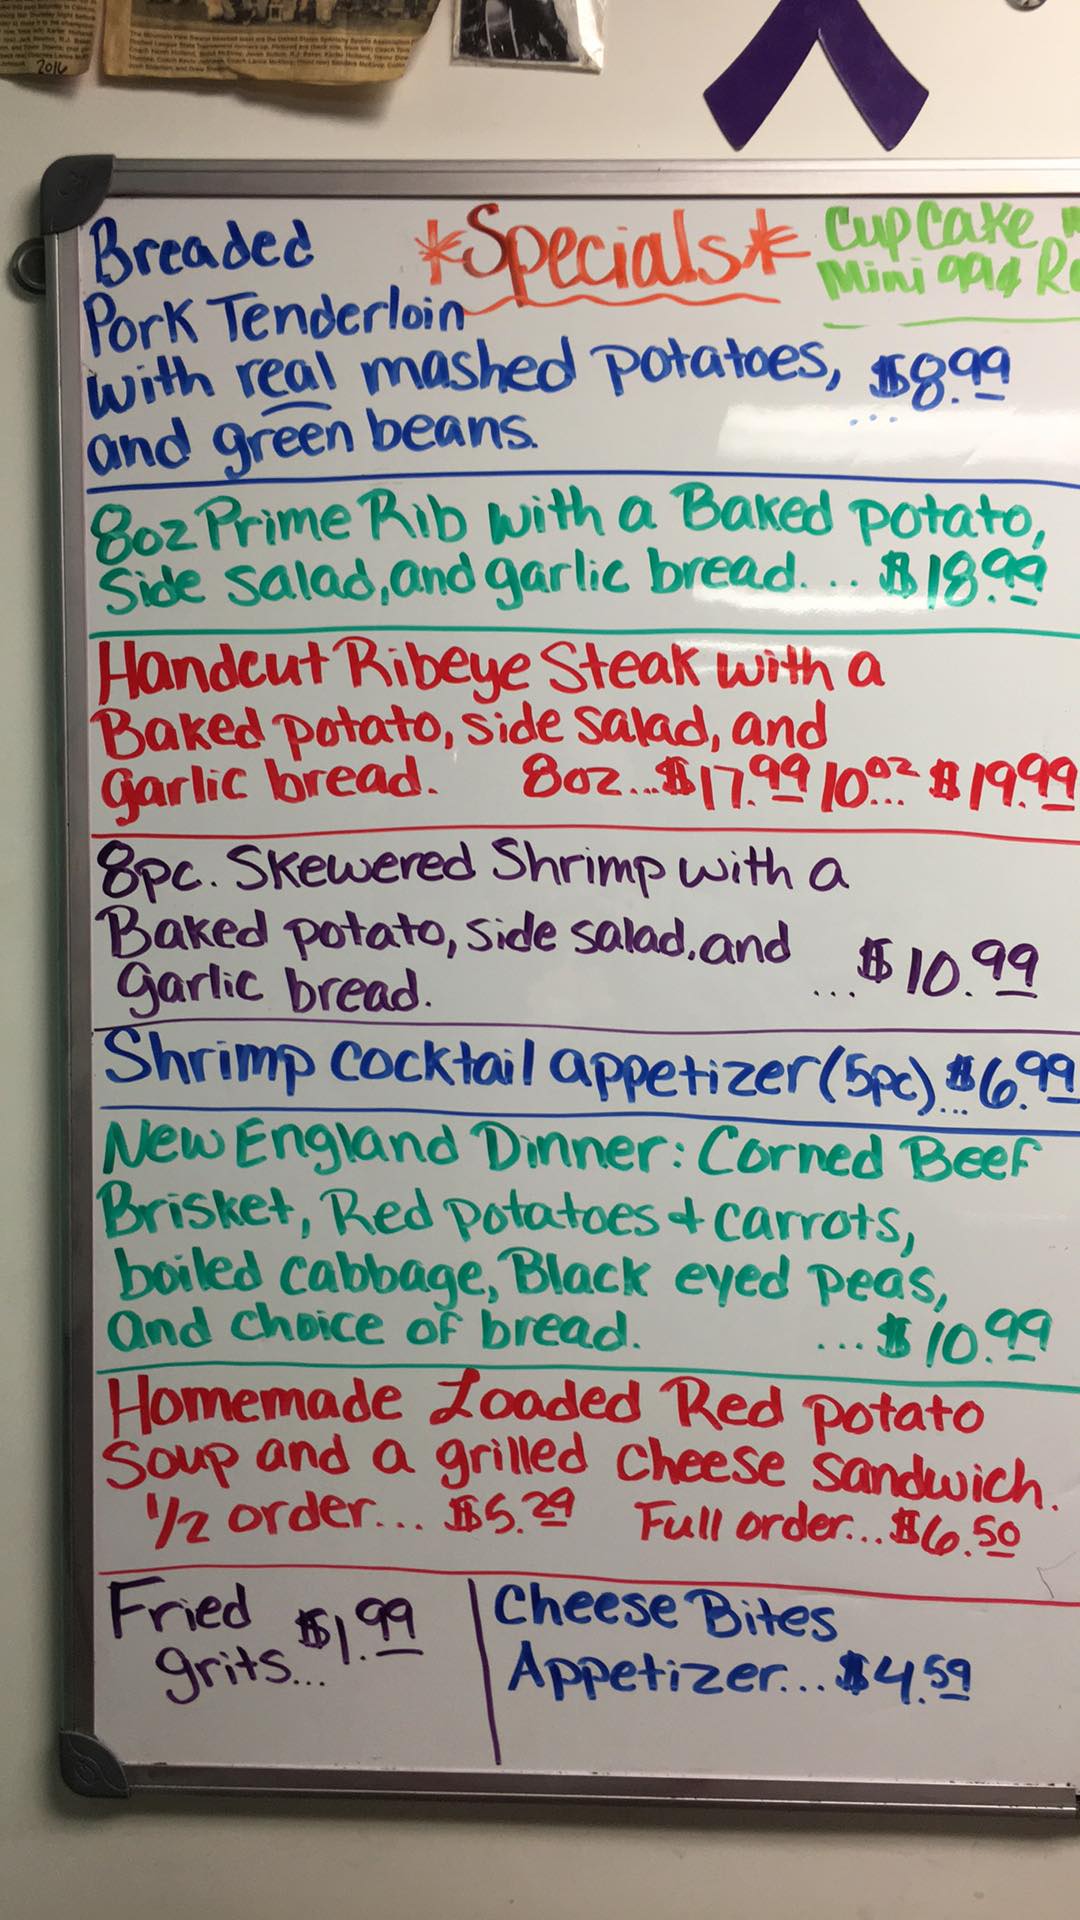 2016
Breaded
*Specials*
CupCake
Mini
Pork Tenderloin
with real mashed potatoes, $8.99
and green beans. ...
8oz Prime Rib with a Baked potato,
Side salad, and garlic bread... $18.99
Handcut Ribeye Steak with a
Baked potato, side salad, and
garlic bread. 8oz...$17.99 10oz... $19.99
8pc. Skewered Shrimp with a
Baked potato, side salad, and ...$10.99
garlic bread.
Shrimp cocktail appetizer (5pc)...$6.99
New England Dinner: Corned Beef
Brisket, Red potatoes + carrots,
boiled cabbage, Black eyed peas,
and choice of bread. ...$10.99
Homemade Loaded Red potato
Soup and a grilled cheese sandwich.
1/2 order... $5.29 Full order...$6.50
Fried $1.99
grits...
Cheese Bites
Appetizer...$4.59